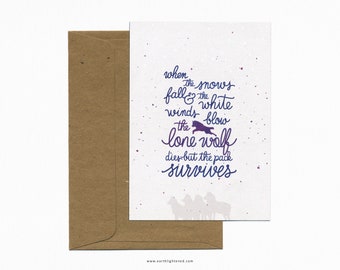 when
the snows
fall & the white
winds blow
the
lone wolf
dies but the pack
survives